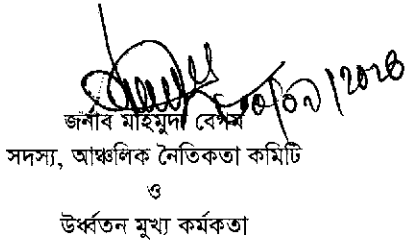 জনাব মাহমুদা বেগম
সদস্য, আঞ্চলিক নৈতিকতা কমিটি
ও
উর্ধ্বতন মুখ্য কর্মকতা